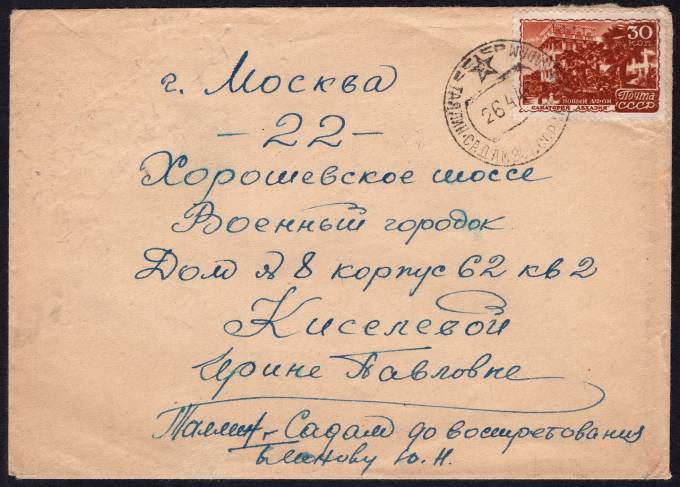 30
коп
НОВЫЙ АФОН
САНАТОРИЙ "АБХАЗИЯ"
Почта
СССР
26.4
ТАЛЛИН-САДАМ
г. Москва
-22-
Хорошевское шоссе
Военный городок
Дом № 8 корпус 62 кв 2
Киселевой
Ирине Павловне
Таллин, Садам до востретования
Блинову Ю. Н.